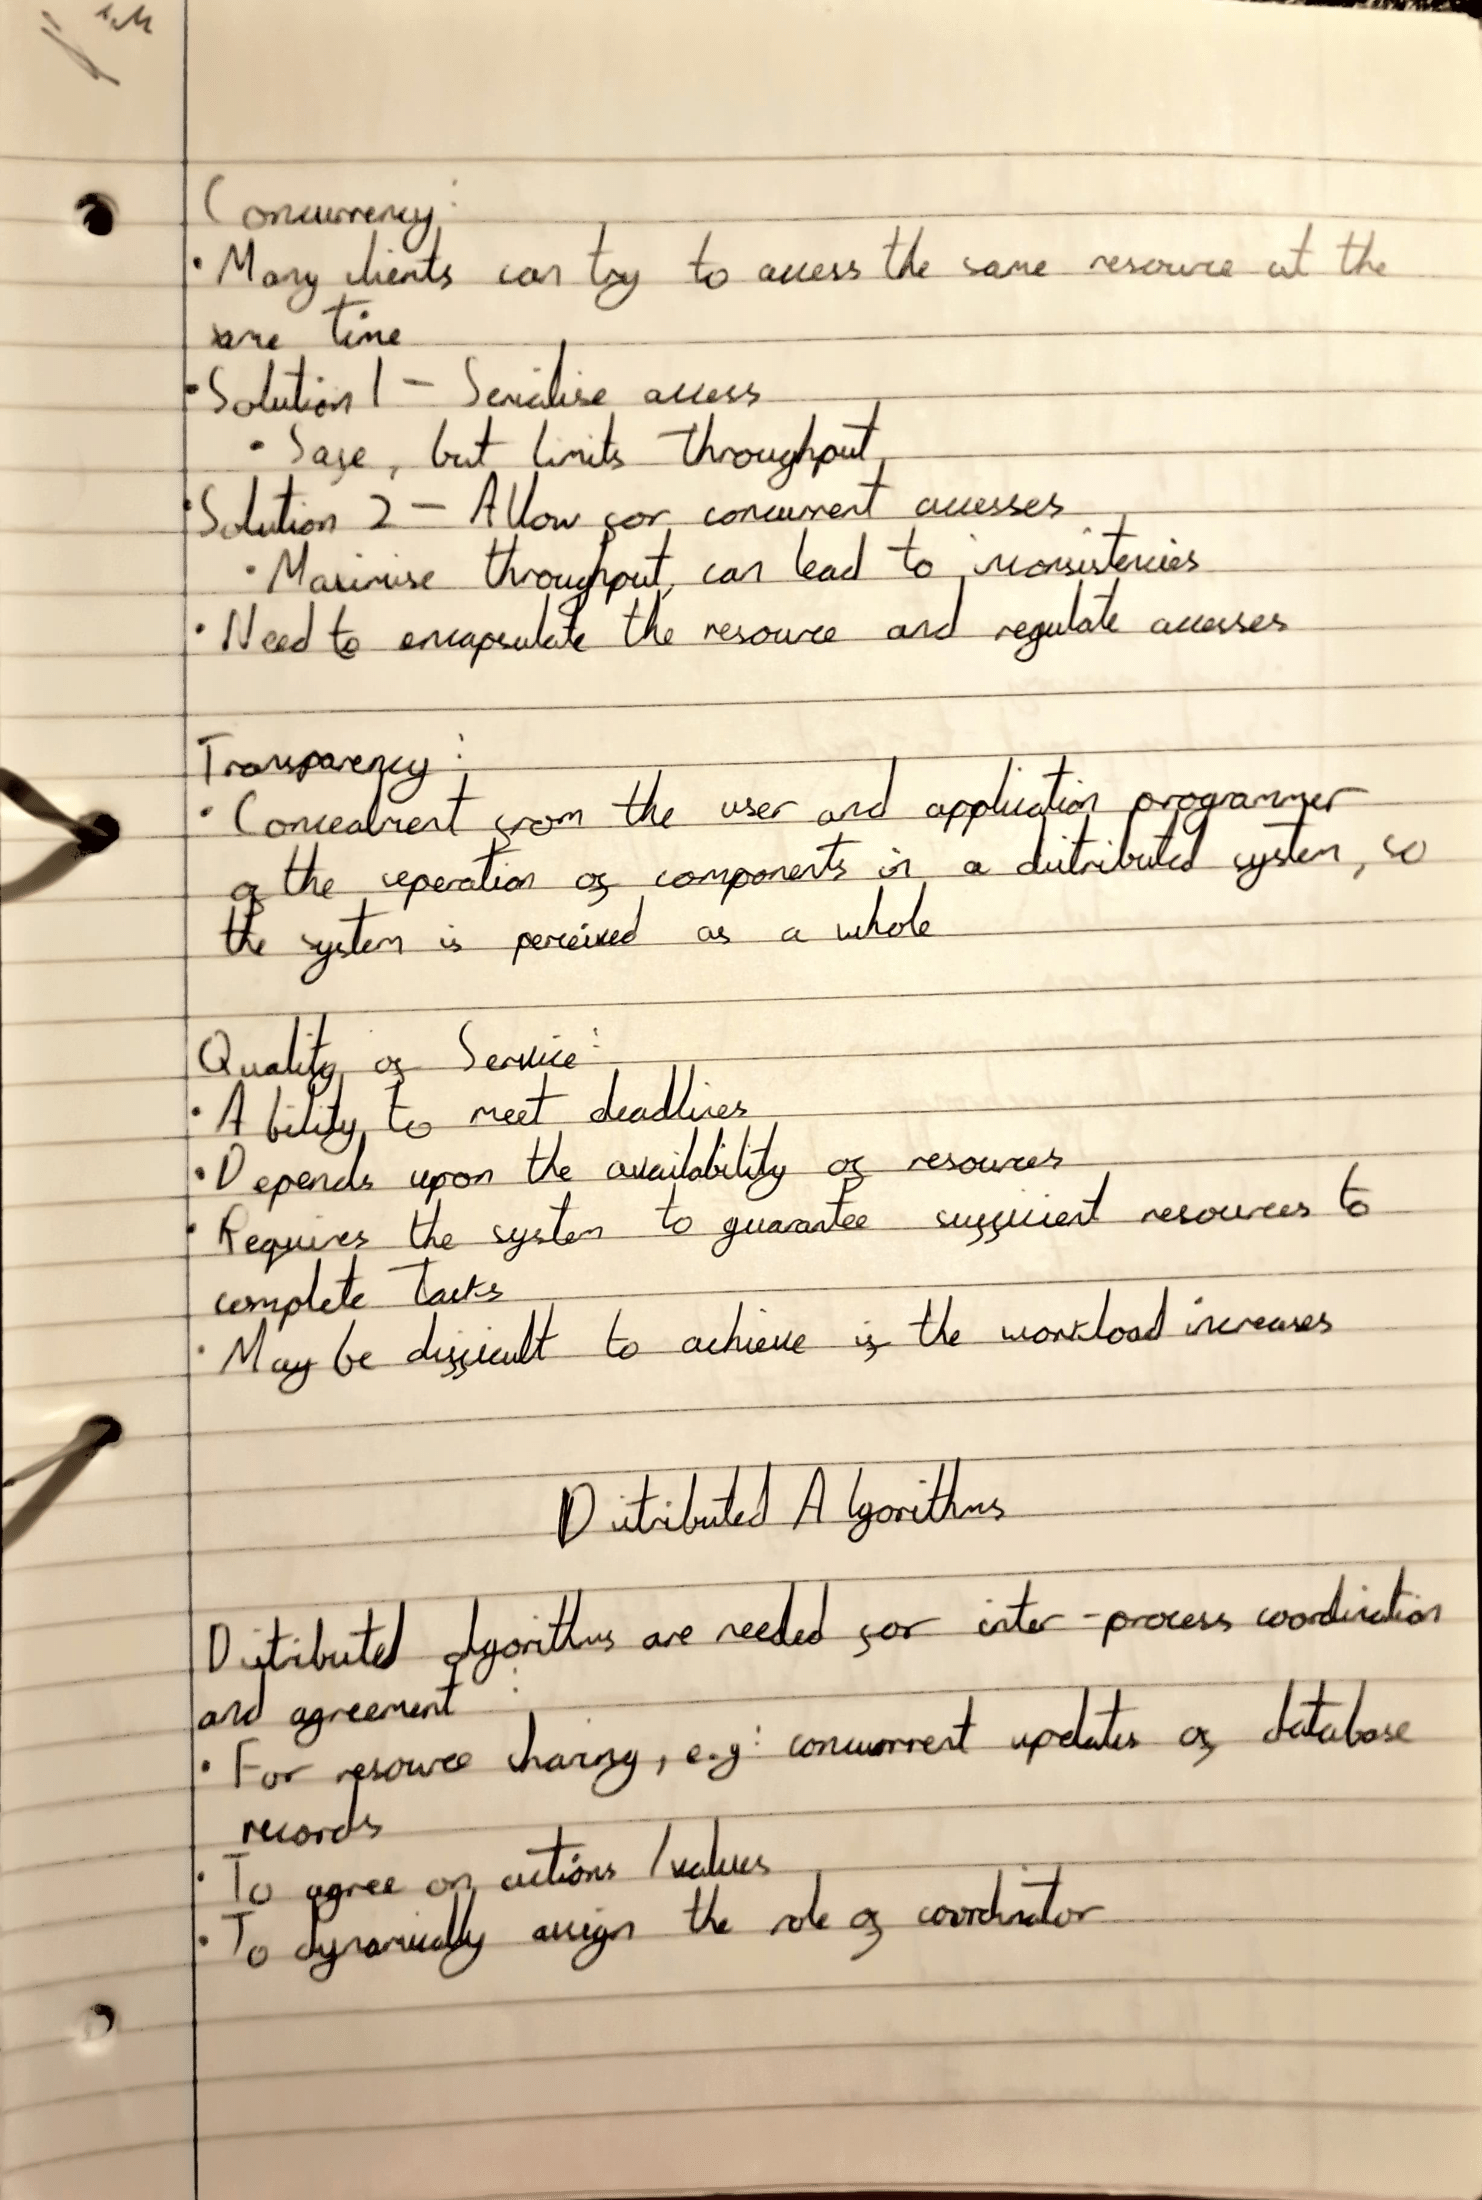 Concurrency:
• Many clients can try to access the same resource at the
same time
• Solution 1 - Serialise access
• Safe, but limits throughput
• Solution 2 - Allow for concurrent accesses
• Maximise throughput, can lead to inconsistencies
• Need to encapsulate the resource and regulate accesses
Transparency:
• Concealment from the user and application programmer
of the seperation of components in a distributed system, so
the system is perceived as a whole
Quality of Service:
• Ability to meet deadlines
• Depends upon the availability of resources
• Requires the system to guarantee sufficient resources to
complete tasks
• May be difficult to achieve if the workload increases
Distributed Algorithms
Distributed algorithms are needed for inter-process coordination
and agreement:
• For resource sharing, e.g: concurrent updates of database
records
• To agree on actions / values
• To dynamically assign the role of coordinator